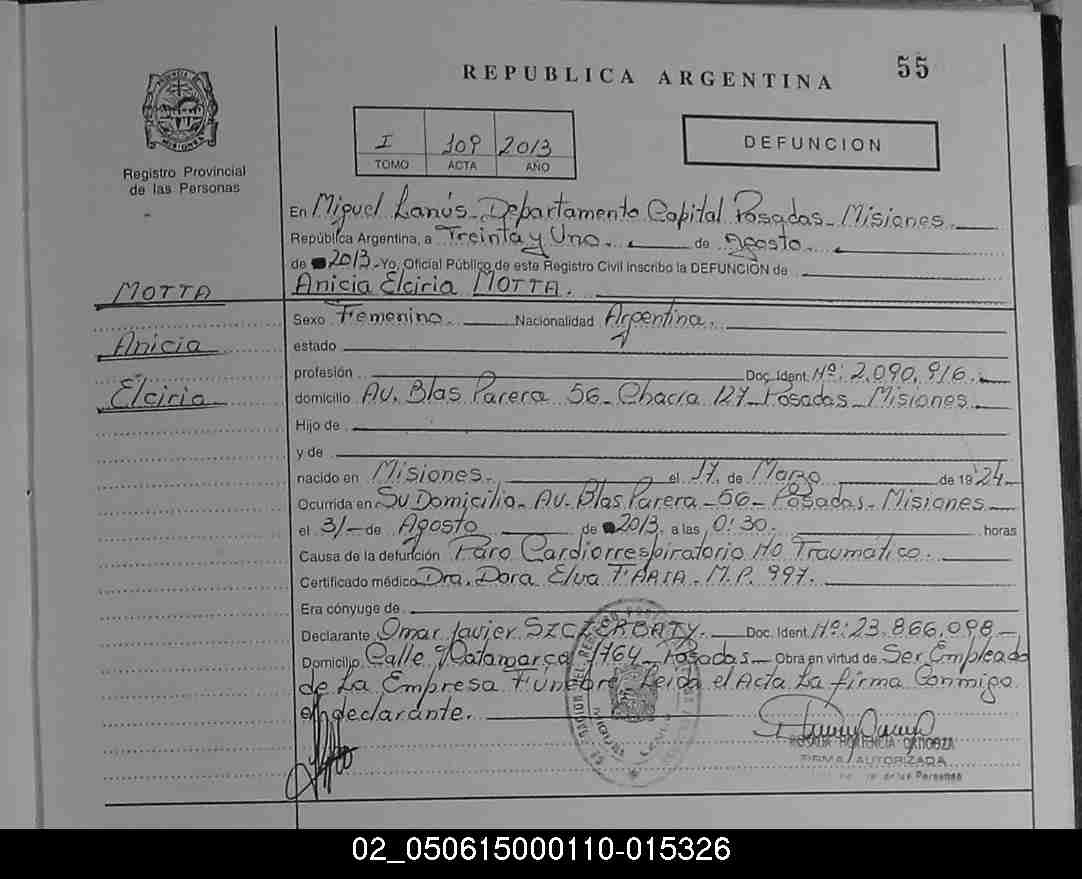 55
REPUBLICA ARGENTINA
PROVINCIA DE MISIONES
Registro Provincial
de las Personas
I 109 2013
TOMO ACTA AÑO
DEFUNCION
En Miguel Lanús - Departamento Capital Posadas - Misiones
República Argentina, a Treinta y Uno. de Agosto.
de 2013 - Yo, Oficial Público de este Registro Civil inscribo la DEFUNCION de
MOTTA
Anicia Elciria MOTTA.
Sexo Femenino. Nacionalidad Argentina.
Anicia
estado
profesión Doc. Ident. Nº: 2.090.916.
Elciria
domicilio AV. Blas Parera 56 - Chacra 127 - Posadas - Misiones
Hijo de
y de
nacido en Misiones. el 17. de Marzo de 1924.
Ocurrida en Su Domicilio - AV. Blas Parera - 56 - Posadas - Misiones
el 31 - de Agosto de 2013. a las 0:30. horas
Causa de la defunción Paro Cardiorrespiratorio No Traumático.
Certificado médico Dra. Dora Elva - M.P. 997.
Era cónyuge de
Declarante Omar Javier SZCZERBATY. Doc. Ident. Nº: 23.866.098 -
Domicilio Calle Catamarca 1764 - Posadas - Obra en virtud de Ser Empleado
de La Empresa Fúnebre Leída el Acta La firma Conmigo
el declarante.
FIRMA AUTORIZADA
de las Personas
02_050615000110-015326